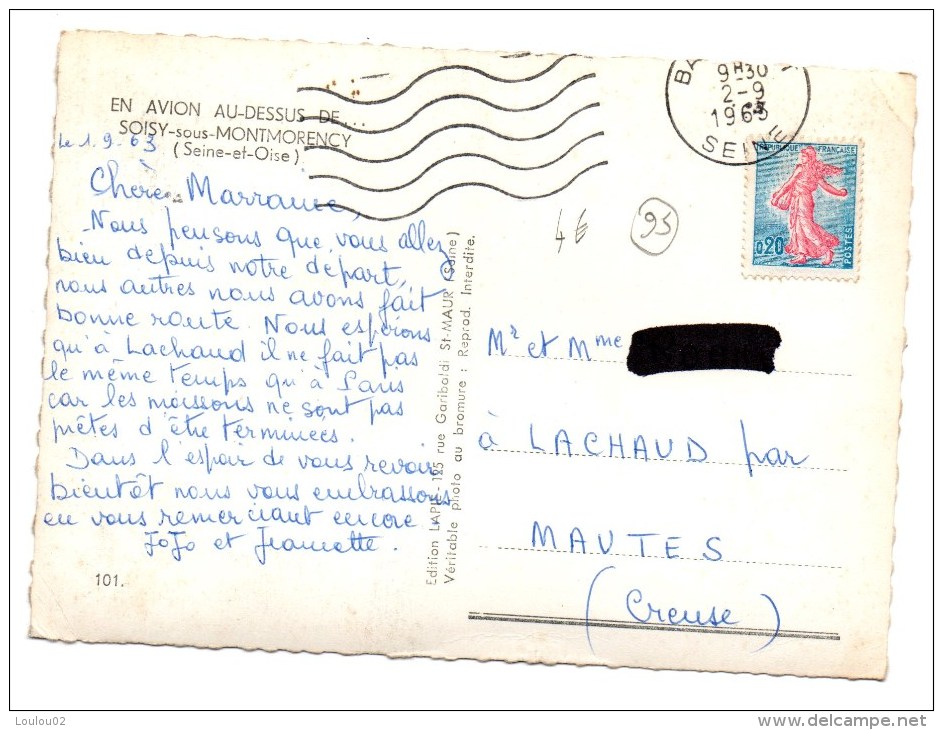 EN AVION AU-DESSUS DE...
SOISY-sous-MONTMORENCY
(Seine-et-Oise)
Le 1.9.63
Chère Marraine,
Nous pensons que vous allez
bien depuis notre départ,
nous autres nous avons fait
bonne route. Nous espérons
qu'à Lachaud il ne fait pas
le même temps qu'à Paris
car les moissons ne sont pas
prêtes d'être terminées.
Dans l'espoir de vous revoir
bientôt nous vous embrassons
en vous remerciant encore.
JoJo et Jeannette.
101.
Edition LAPIE 125 rue Garibaldi St-MAUR (Seine)
Véritable photo au bromure : Reprod. Interdite.
4€
95
9H30
2-9
1963
REPUBLIQUE FRANÇAISE
0,20
POSTES
Mr et Mme
à LACHAUD par
MAUTES
(Creuse)
Loulou02
delcampe.net